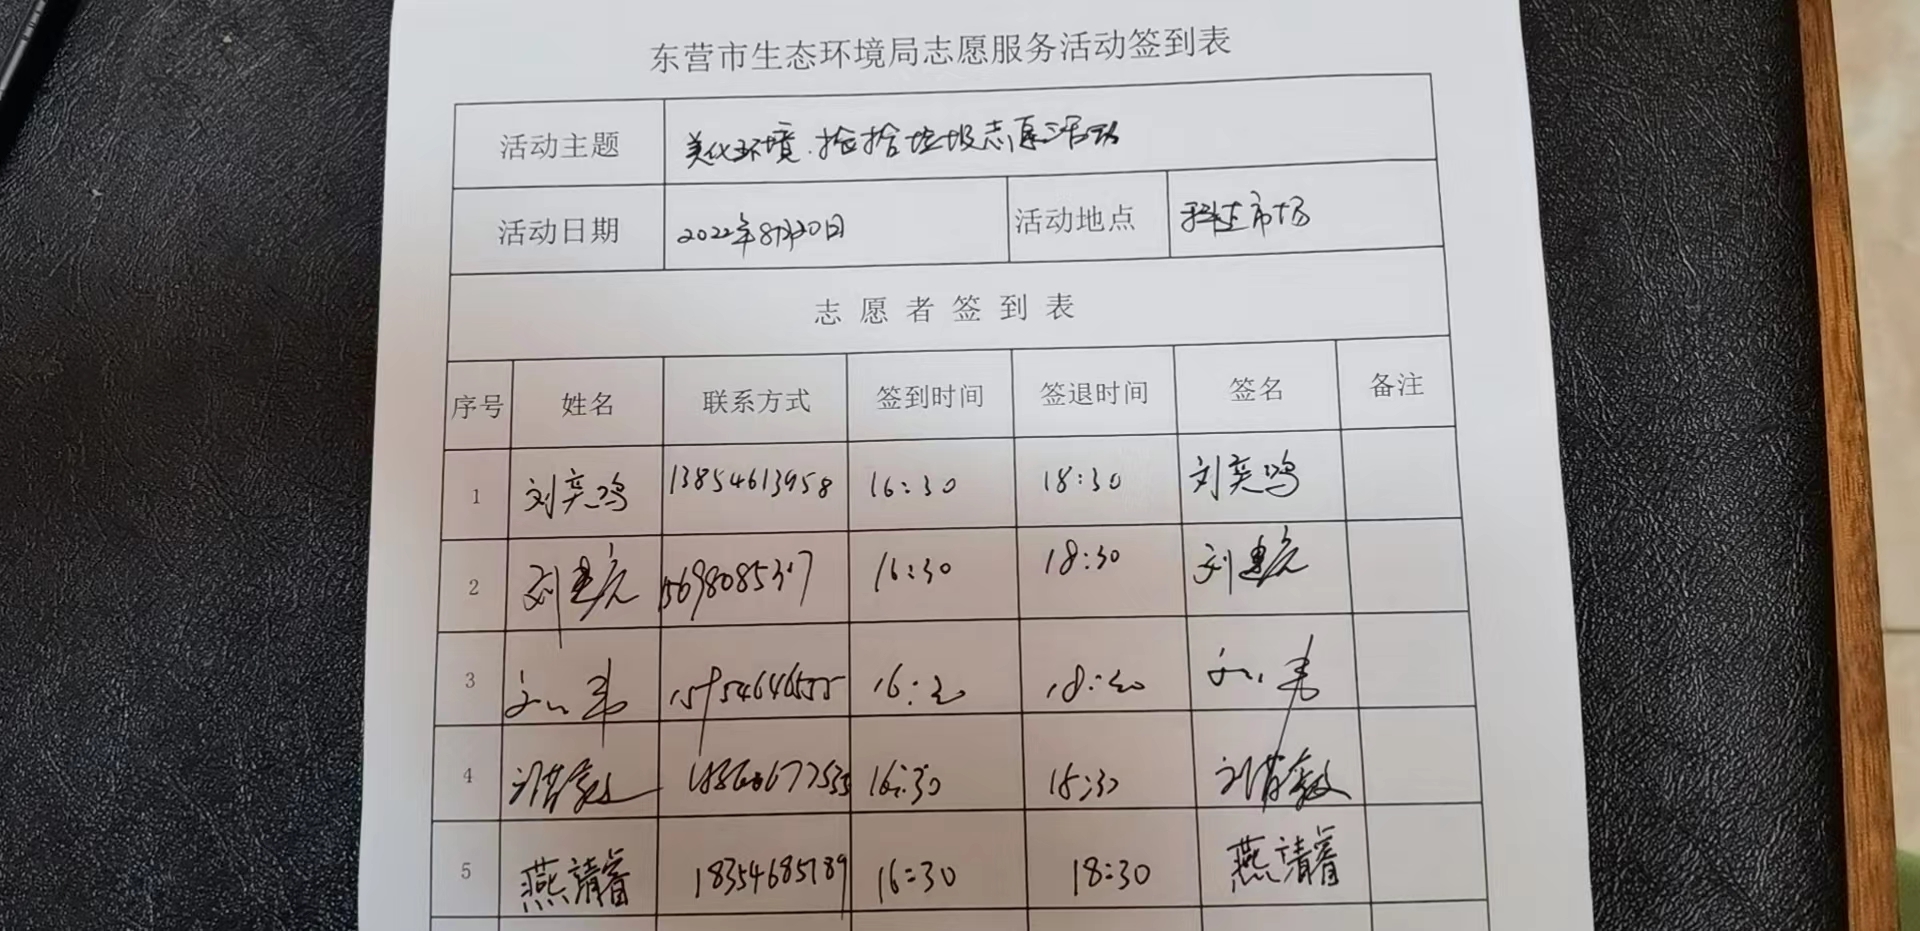 东营市生态环境局志愿服务活动签到表
活动主题 美化环境.捡拾垃圾志愿活动
活动日期 2022年8月20日 活动地点 科达市场
志愿者签到表
序号 姓名 联系方式 签到时间 签退时间 签名 备注
1 刘奕鸣 13854613958 16:30 18:30 刘奕鸣
2 刘建亮 15698085317 16:30 18:30 刘建亮
3 15954646555 16:30 18:30
4 16:30 18:30
5 燕清睿 18354685789 16:30 18:30 燕清睿